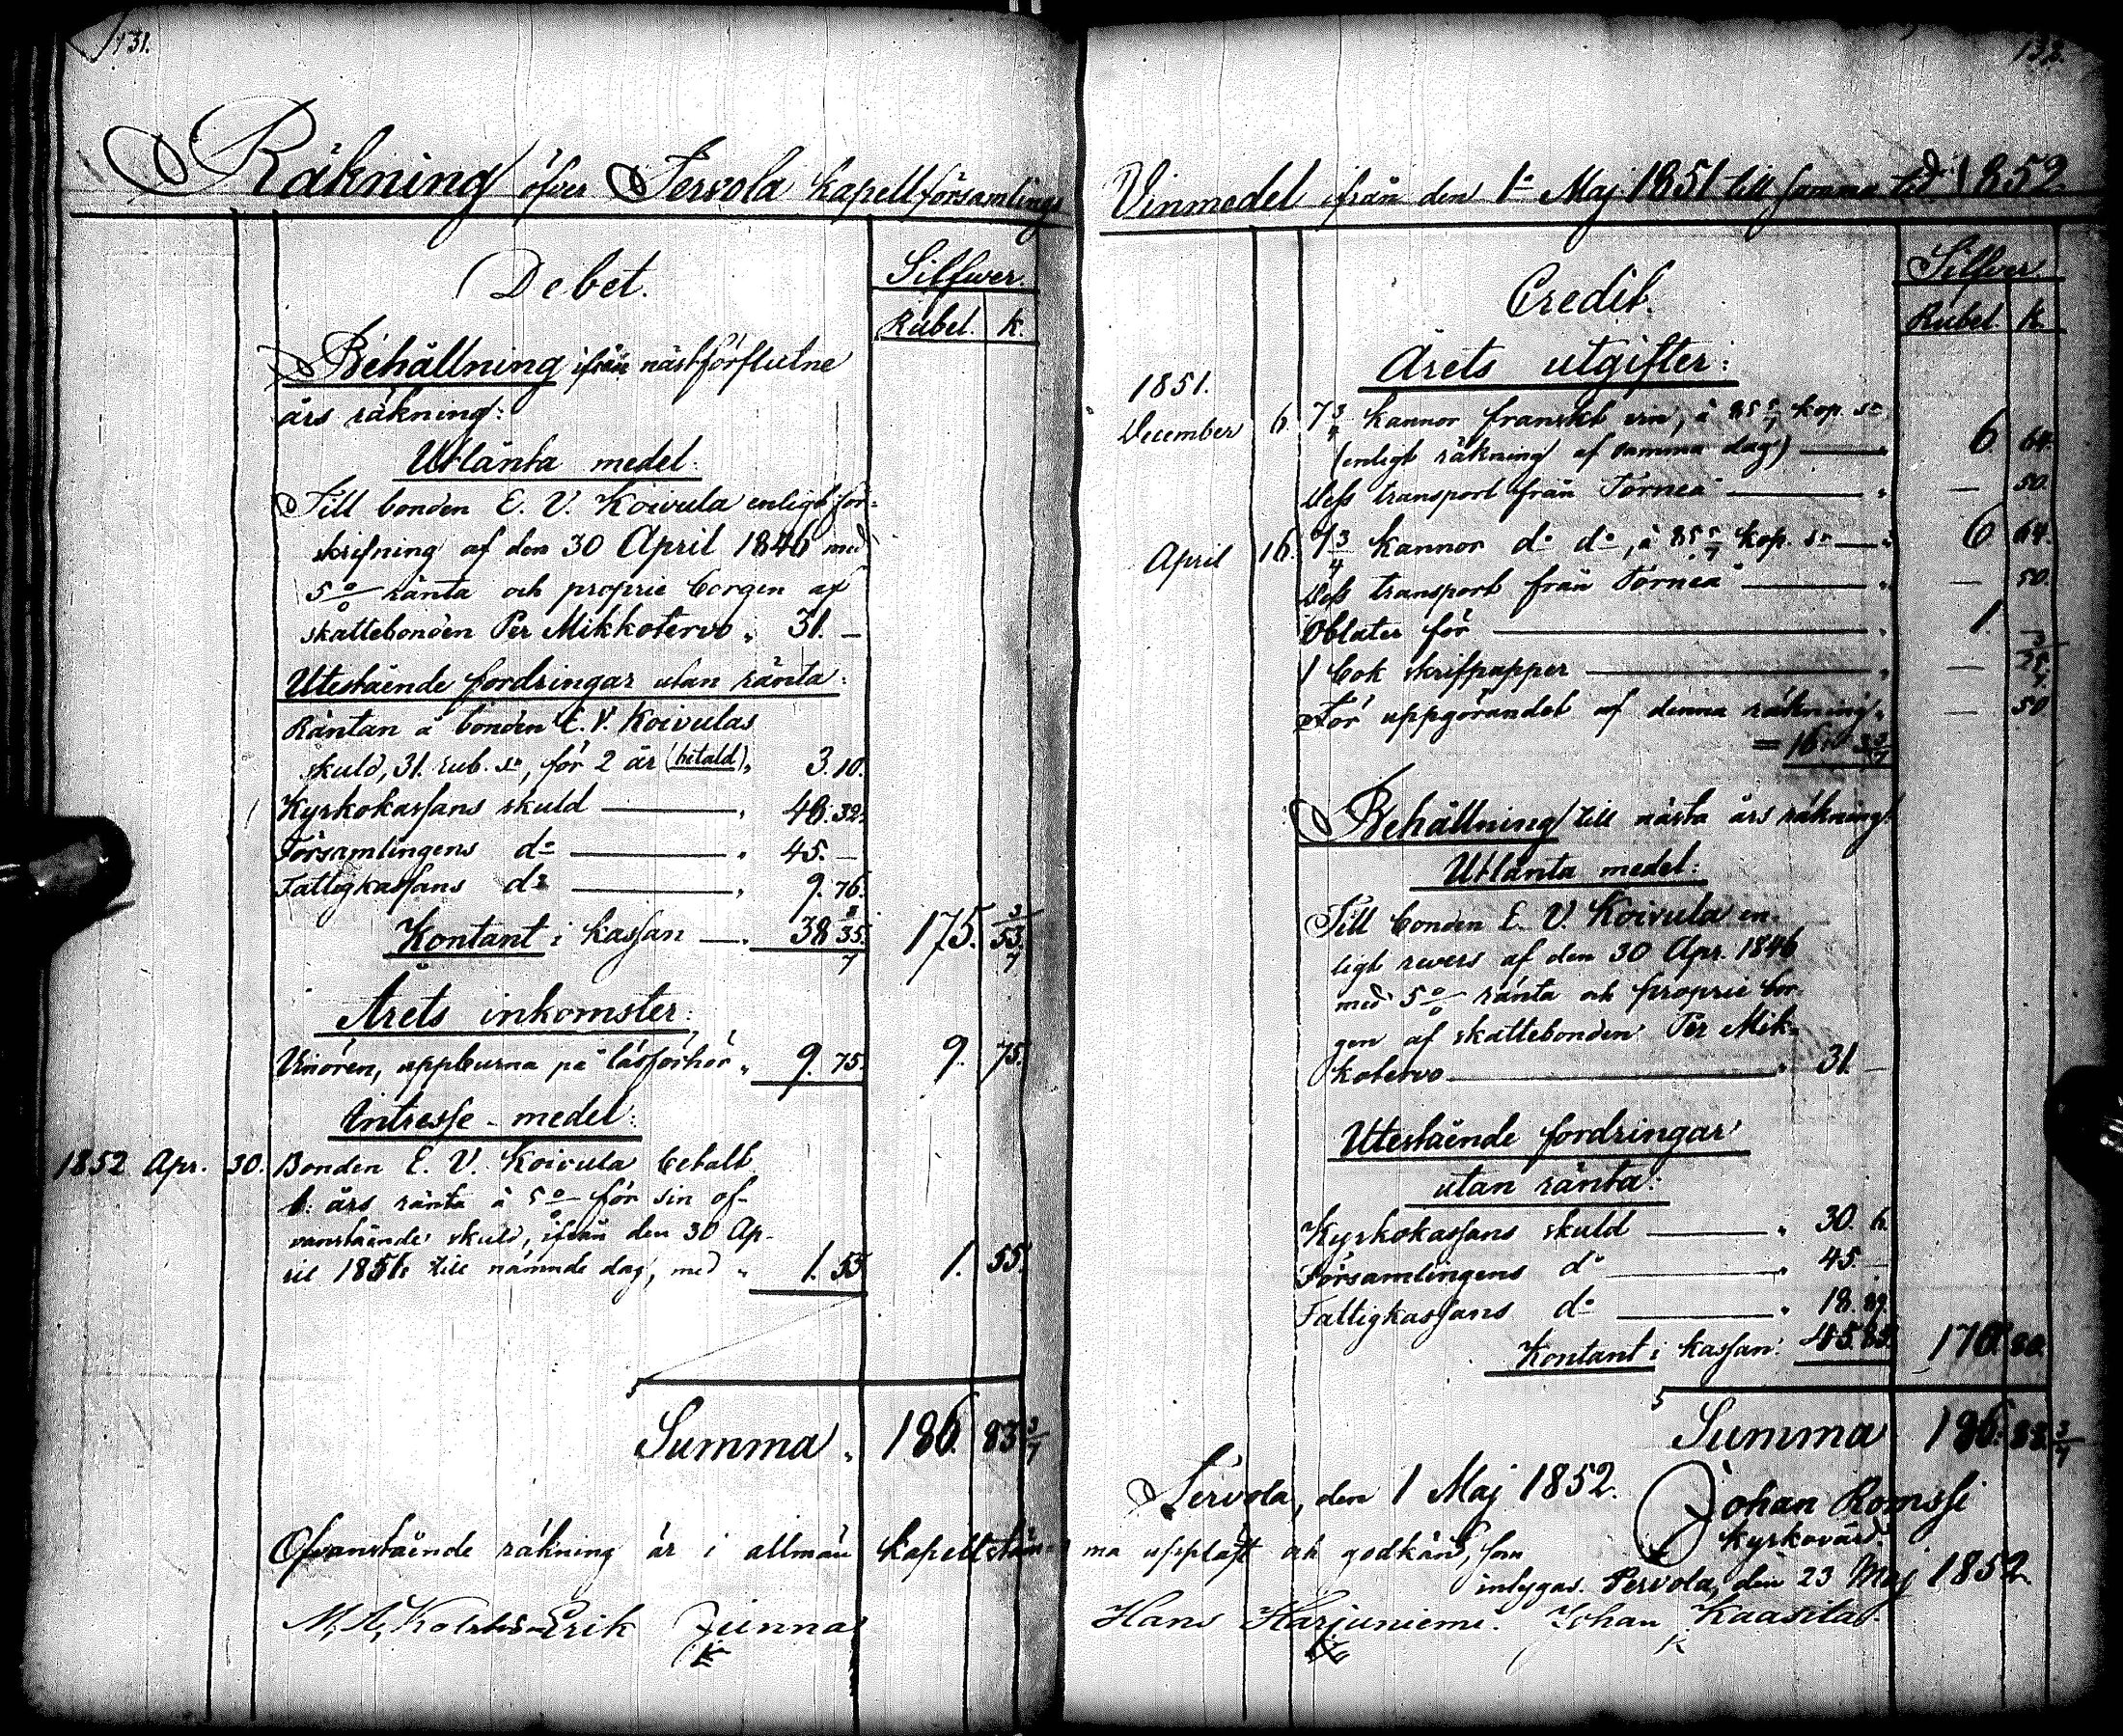 131.
Räkning öfver Tervola kapellförsamlings
Debet.
Silfwer.
Rubel. k.
Behållning ifrån nästförflutne
års räkning:
Utlånta medel:
Till bonden E. V. Koivula enligt för-
skrifning af den 30 April 1846 med
5 % ränta och proprie borgen af
skattebonden Per Mikkotervo " 31. —
Utestående fordringar utan ränta:
Räntan å bonden E. V. Koivulas
skuld, 31. rub. sr, för 2 år (betald) " 3. 10.
Kyrkokassans skuld — " 48. 32.
Församlingens do — " 45. —
Fattigkassans do — " 9. 76.
Kontant i kassan — " 38 35 3/7 175. 53 3/7
Årets inkomster:
Vinören, uppburna på läsförhör " 9. 75. 9. 75.
Intresse-medel:
1852 Apr. 30. Bonden E. V. Koivula betalt
1. års ränta à 5 % för sin of-
vanstående skuld, ifrån den 30 Ap-
ril 1851 till nämnde dag, med " 1. 55 1. 55.
Summa " 186. 83 3/7
Ofvanstående räkning är i allmän kapellstäm-
Erik
132.
Vinmedel ifrån den 1a Maj 1851 till samma tid 1852.
Credit.
Silfver
Rubel k.
Årets utgifter:
1851.
December 6. 7 3/4 kannor franskt vin, à 85 5/7 kop. sr
(enligt räkning af samma dag) — 6. 64.
Dess transport från Torneå — " — 50.
April 16. 7 3/4 kannor do do, à 85 5/7 kop. sr — " 6 64.
Dess transport från Torneå — " — 50.
Oblater för — " 1. —
1 bok skrifpapper — " — 25 3/7
För uppgörandet af denna räkning " — 50
Behållning till nästa års räkning:
Utlånta medel:
Till bonden E. V. Koivula en-
ligt revers af den 30 Apr. 1846
med 5 % ränta och proprie bor-
gen af skattebonden Per Mik-
kotervo — " 31. —
Utestående fordringar
utan ränta:
Kyrkokassans skuld — " 30.
Församlingens do — " 45. —
Fattigkassans do — " 18. 89.
Kontant i kassan:
Summa 186. 83 3/7
Tervola, den 1 Maj 1852.
Johan Romssi
Kyrkovärd.
ma uppläst och godkänd, som
intygas. Tervola, den 23 Maj 1852.
Hans Harjuniemi. Johan Kaasila